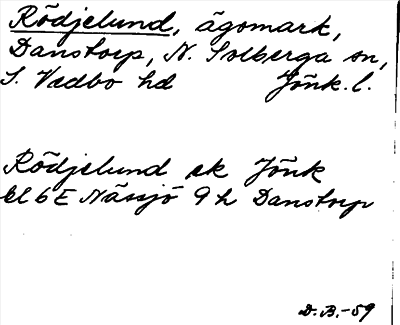 Rödjelund, ägomark,
Danstorp, N. Solberga sn,
S. Vedbo hd Jönk. l.
Rödjelund ek Jönk
bl 6E Nässjö 9 h Danstorp
D. B. -59